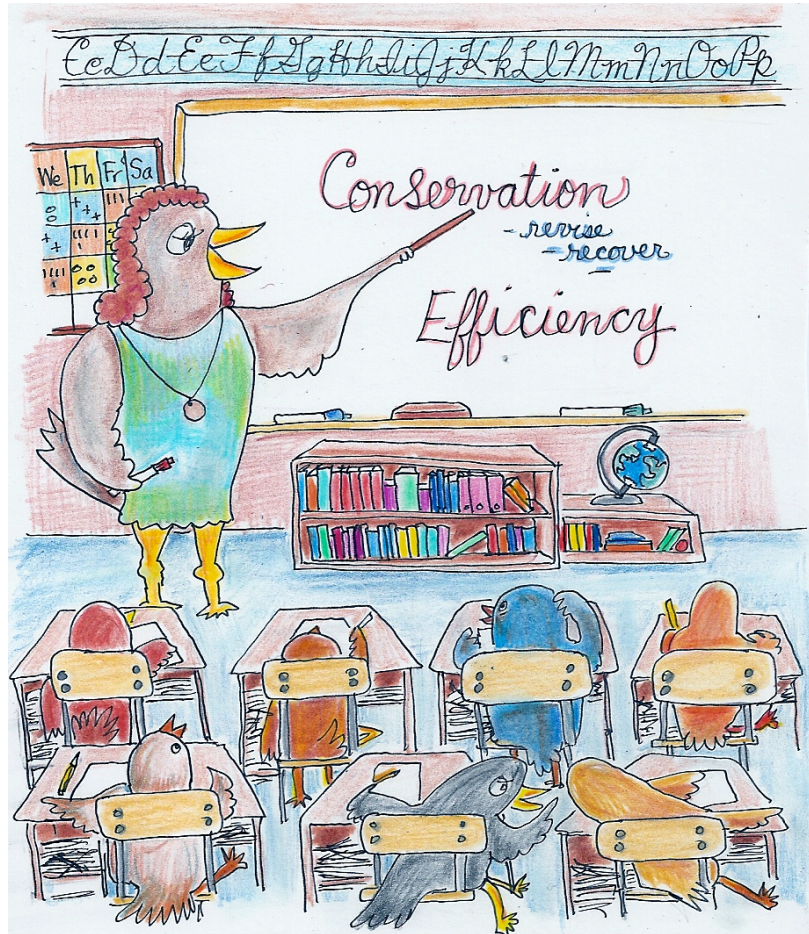 CcDdEeFfGgHhIiJjKkLlMmNnOoPp
We Th Fr Sa
Conservation
- revise
- recover
Efficiency